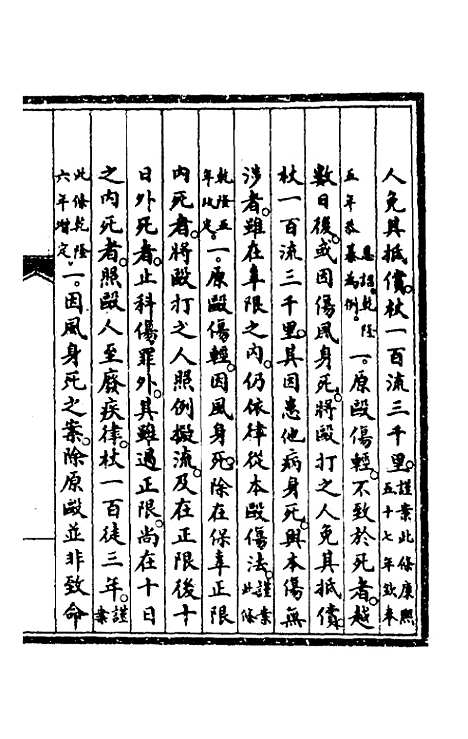 人免其抵償。杖一百流三千里。謹案此條康熙五十七年欽奉
恩詔。乾隆五年恭纂為例。一。原毆傷輕。不致於死者。越
數日後。或因傷風身死。將毆打之人免其抵償。
杖一百流三千里。其因患他病身死。與本傷無
涉者。雖在辜限之內。仍依律從本毆傷法。謹案此條
乾隆五年改定。一。原毆傷輕。因風身死。除在保辜正限
內死者。將毆打之人照例擬流。及在正限後十
日外死者。止科傷罪外。其雖過正限。尚在十日
之內死者。照毆人至廢疾律。杖一百徒三年。謹案
此條乾隆六年增定。一。因風身死之案。除原毆並非致命